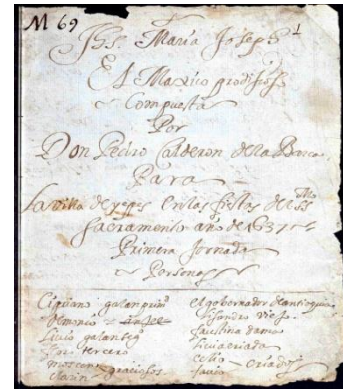 M 69
Jhs. Maria Joseph 1
El Maxico prodijioso
Compuesta
Por
Don Pedro Calderon de la Barca
Para
La villa de yepes en las fiestas del SSmo
Sacramento año de 1637
Primera Jornada
Personas
Cipriano galan primo
Demonio
Lelio galan segº
Floro tercero
moscon
clarin graciosos
el gobernador de antioquia
Lisandro viejo
faustina dama
livia criada
celio
favio criados